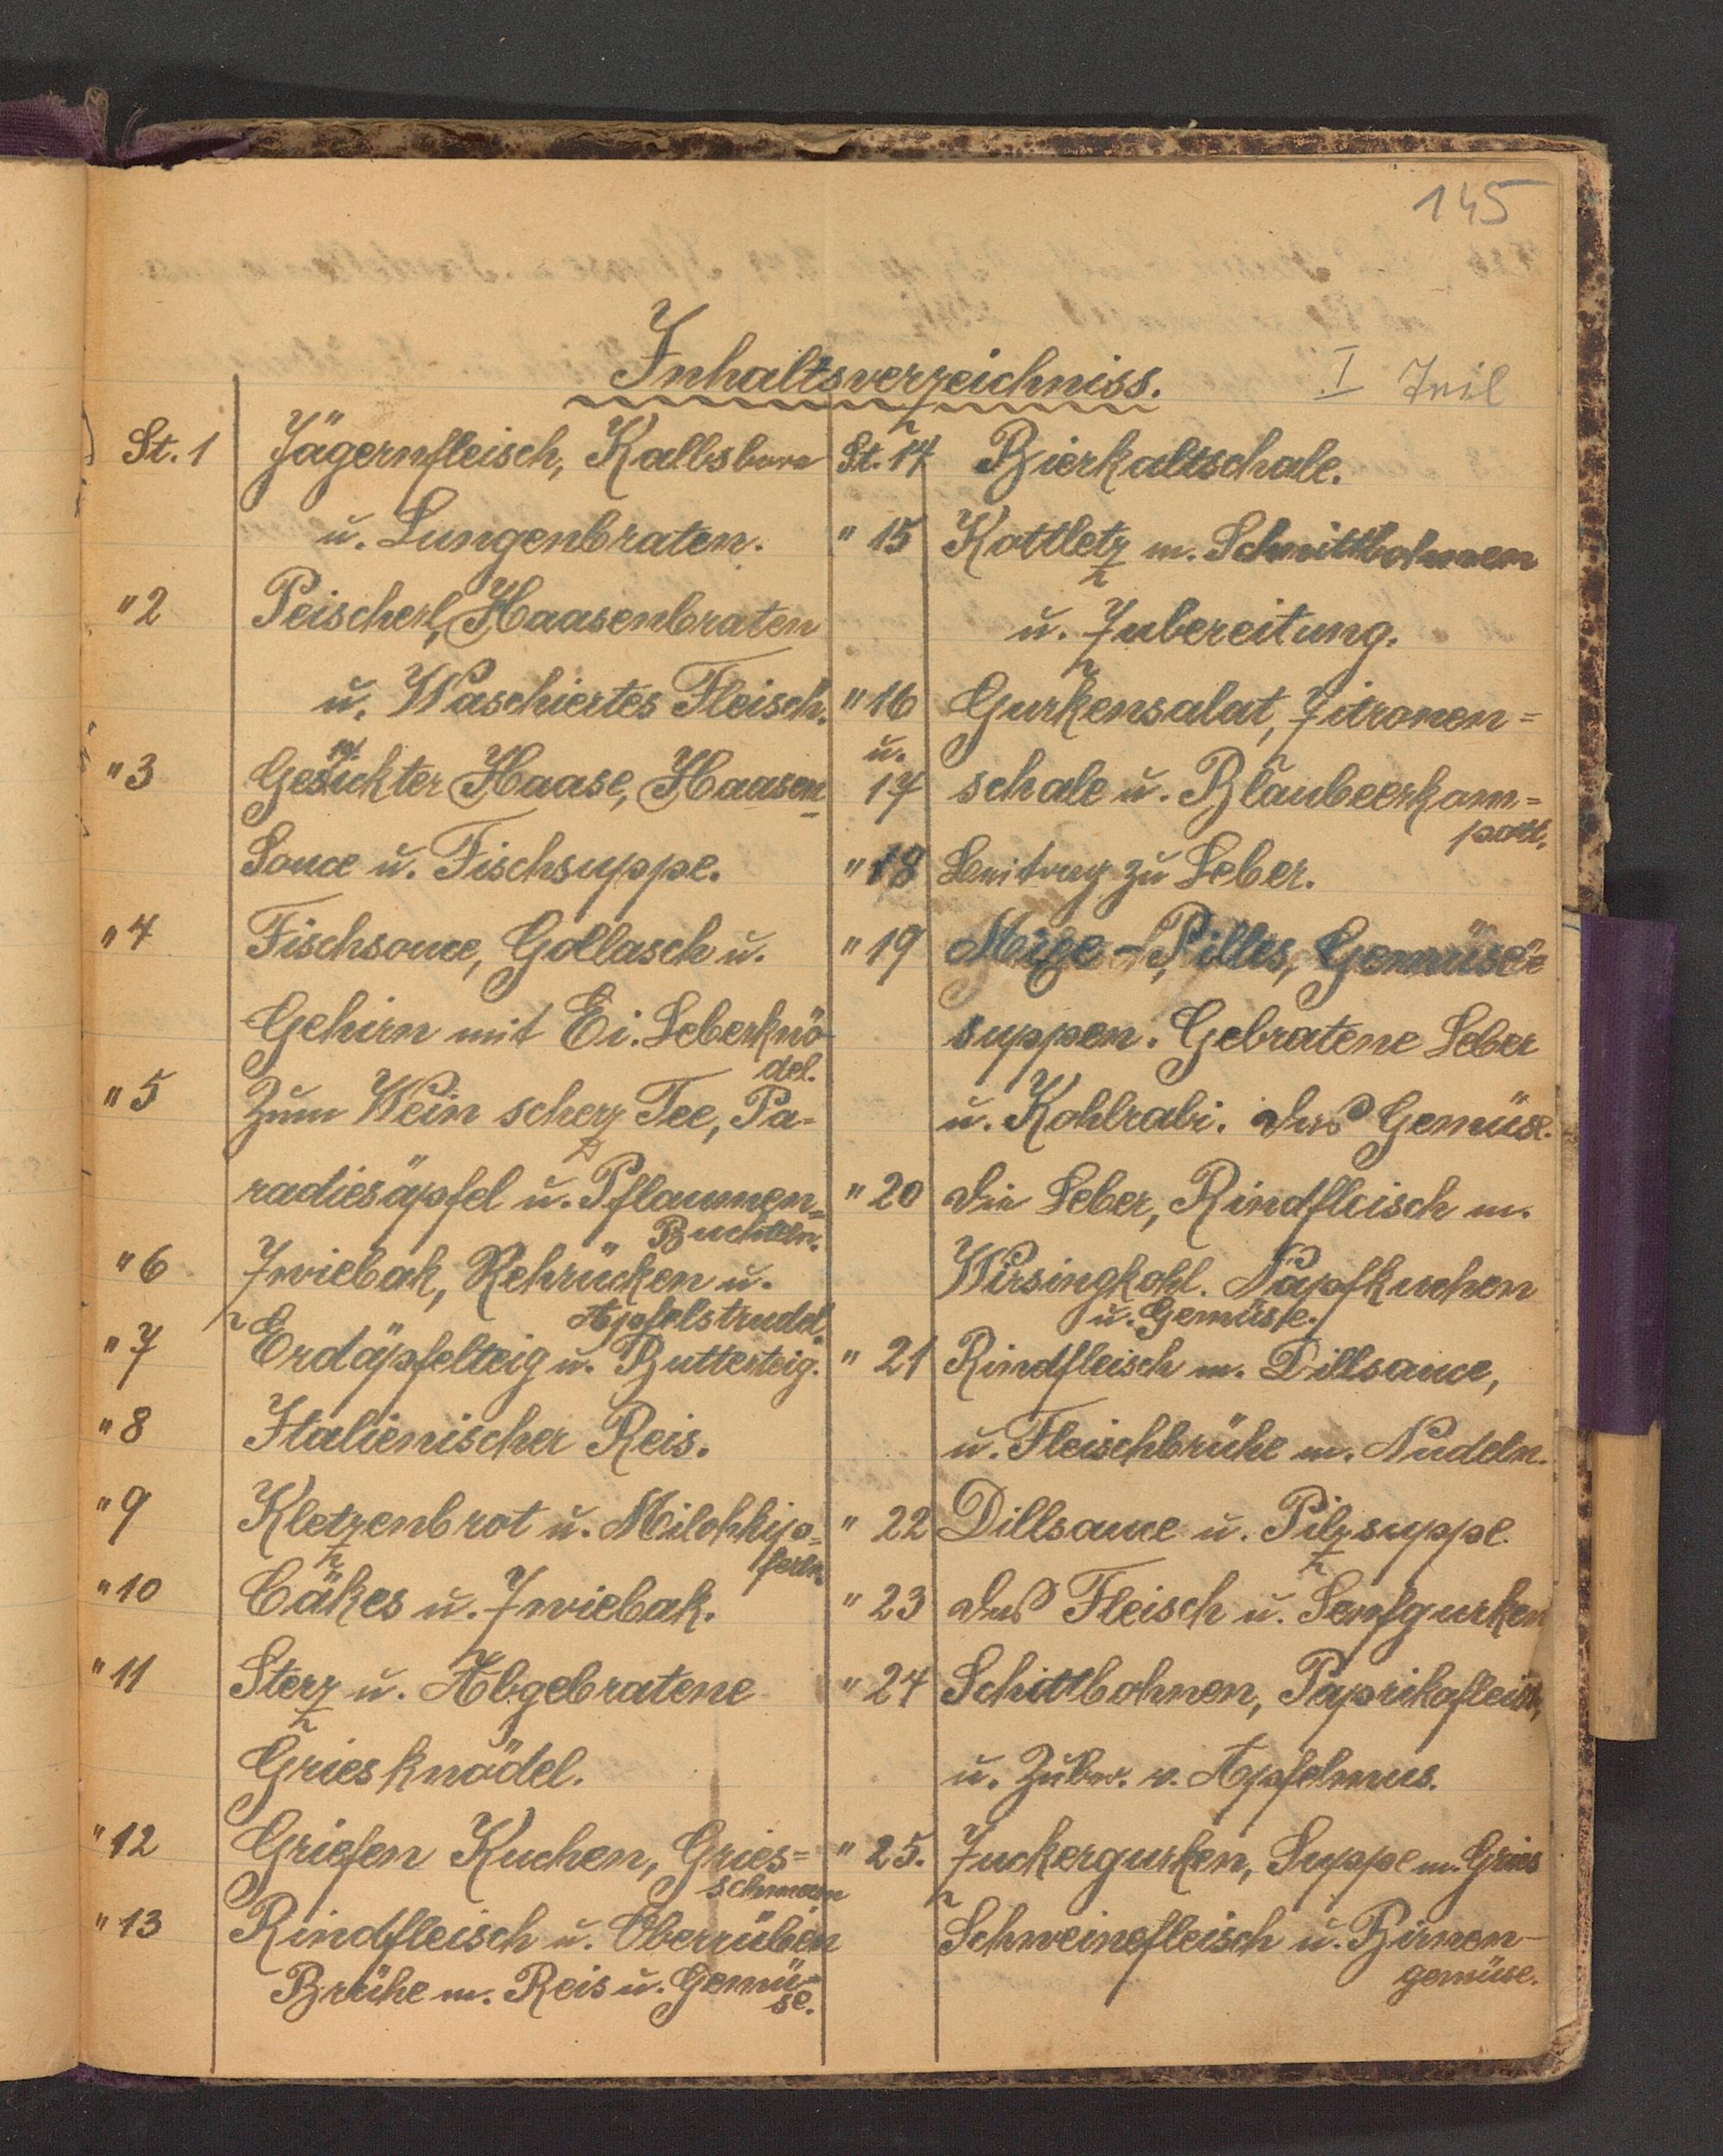 145
Inhaltsverzeichniss.
I Teil
St. 1 Jägernfleisch, Kalbs
u. Lungenbraten.
" 2 Peischerl, Haasenbraten
u. Waschiertes Fleisch.
" 3 Haase, Haasen
Souce u. Fischsuppe.
" 4 Fischsouce, Gollasch u.
Gehirn mit Ei. Leberknö
del.
" 5 Zum Wein scherz Tee, Pa-
radiesäpfel u. Pflaumen=
Buchteln.
" 6 Zwiebak, Rehrücken u.
Apfelstrudel.
" 7 Erdäpfelteig u. Butterteig.
" 8 Italienischer Reis.
" 9 Kletzenbrot u. Milchkip=
ferln.
" 10 Cäkes u. Zwiebak.
" 11 Sterz u. Abgebratene
Griesknödel.
" 12 Griefen Kuchen, Gries=
schmarn
" 13 Rindfleisch u. Oberrüben
Brühe m. Reis u. Gemü=
se.
St. 14 Bierkaltschale.
" 15 Kottletz m. Schnittbohnen
u. Zubereitung.
" 16 Gurkensalat, Zitronen=
u.
17 schale u. Blaubeerkom=
pott.
" 18 zu Leber.
" 19 Pilles, Gemüse
suppen. Gebratene Leber
u. Kohlrabi. das Gemüse.
" 20 die Leber, Rindfleisch m.
Wirsingkohl. Napfkuchen
u. Gemüse.
" 21 Rindfleisch m. Dillsauce,
u. Fleischbrühe m. Nudeln.
" 22 Dillsauce u. Pilzsuppe.
" 23 das Fleisch u. Senfgurken
" 24 Schittbohnen, Paprikafleisch,
u. Zuber. v. Apfelmus.
" 25. Zuckergurken, Suppe m. Gries
Schweinefleisch u. Birnen-
gemüse.